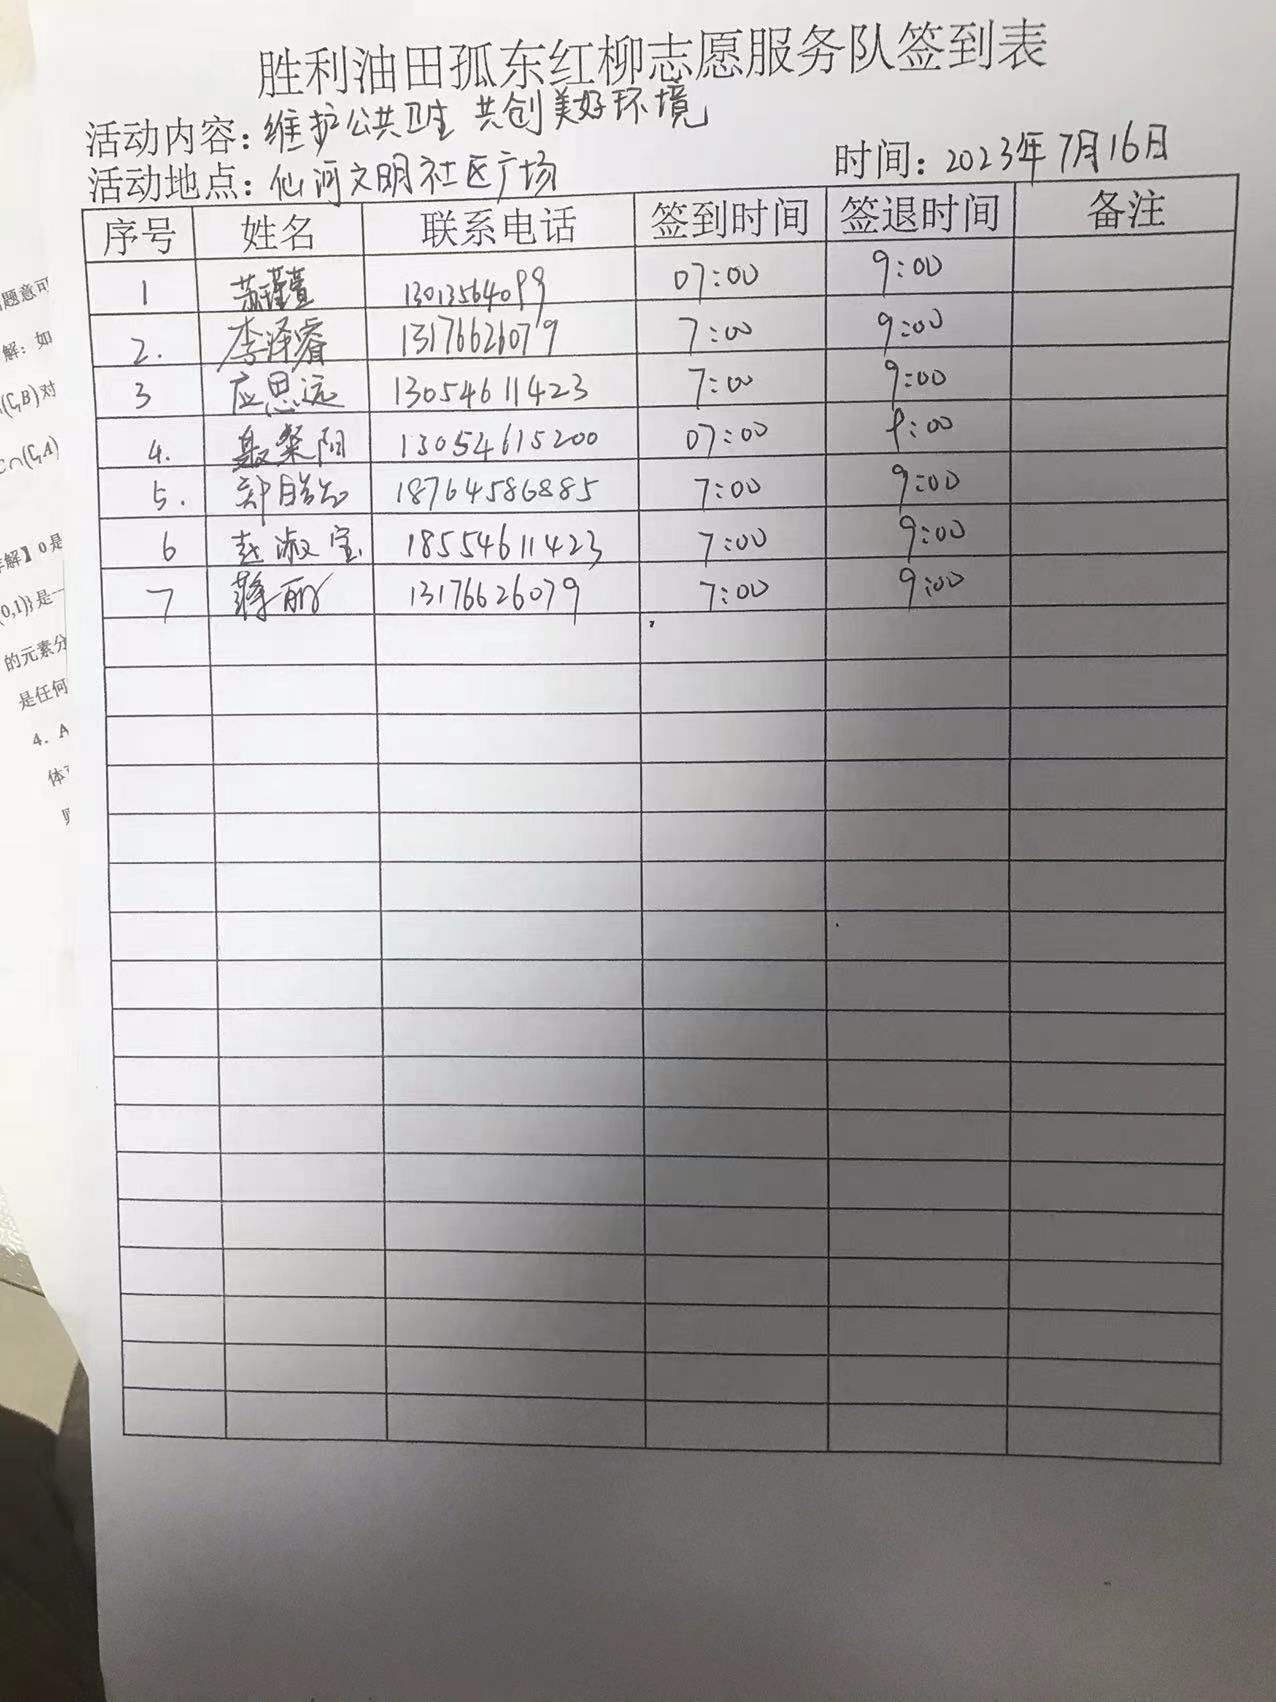 胜利油田孤东红柳志愿服务队签到表
活动内容：维护公共卫生 共创美好环境
活动地点：仙河文明社区广场 时间：2023年7月16日
序号 姓名 联系电话 签到时间 签退时间 备注
1 苏瑾萱 13013564099 07:00 9:00
2. 李泽睿 13176626079 7:00 9:00
3 应思远 13054611423 7:00 9:00
4. 聂粲阳 13054615200 07:00 9:00
5. 郑 18764586885 7:00 9:00
6 赵淑宝 18554611423 7:00 9:00
7 蒋丽 13176626079 7:00 9:00
题意可
解：如
对
解】0是
0,1)}是一
的元素分
是任何
4. A
体